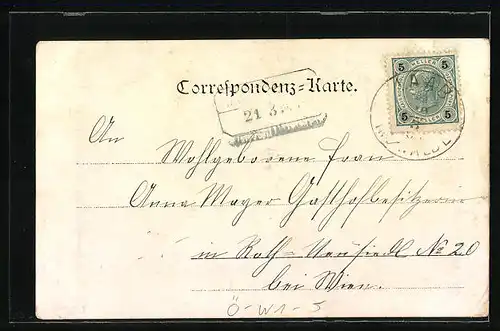 Correspondenz-Karte.
5 5
5 5
21 3
An
Wohlgeborene Frau
Anna Mayer Gasthofbesitzerin
in Roth-Neusiedl No 20
bei Wien.
Ö-W1-5